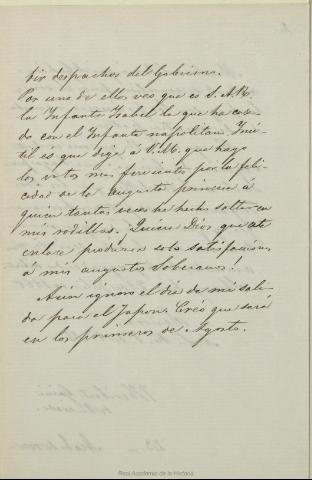 bir despachos del Gobierno.
Por uno de ellos veo que es S. A. R.
la Infanta Isabel la que ha casa-
do con el Infante napolitano. Inú-
til es que diga á V. M. que hago
los votos mas fervientes por la feli-
cidad de la augusta princesa á
quien tantas veces he hecho saltar en
mis rodillas. ¡Quiera Dios que este
enlace produzca solo satisfacciones
a mis augustos Soberanos!
Aun ignoro el dia de mi sali-
da para el Japon. Creo que será
en los primeros de Agosto.
Real Academia de la Historia